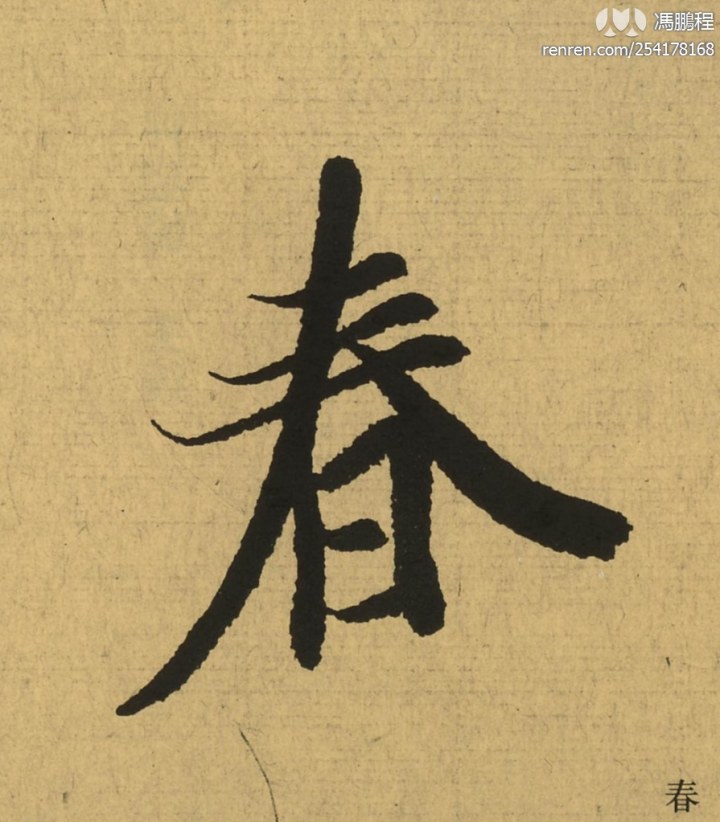 馮鵬程
renren.com/254178168
春
春